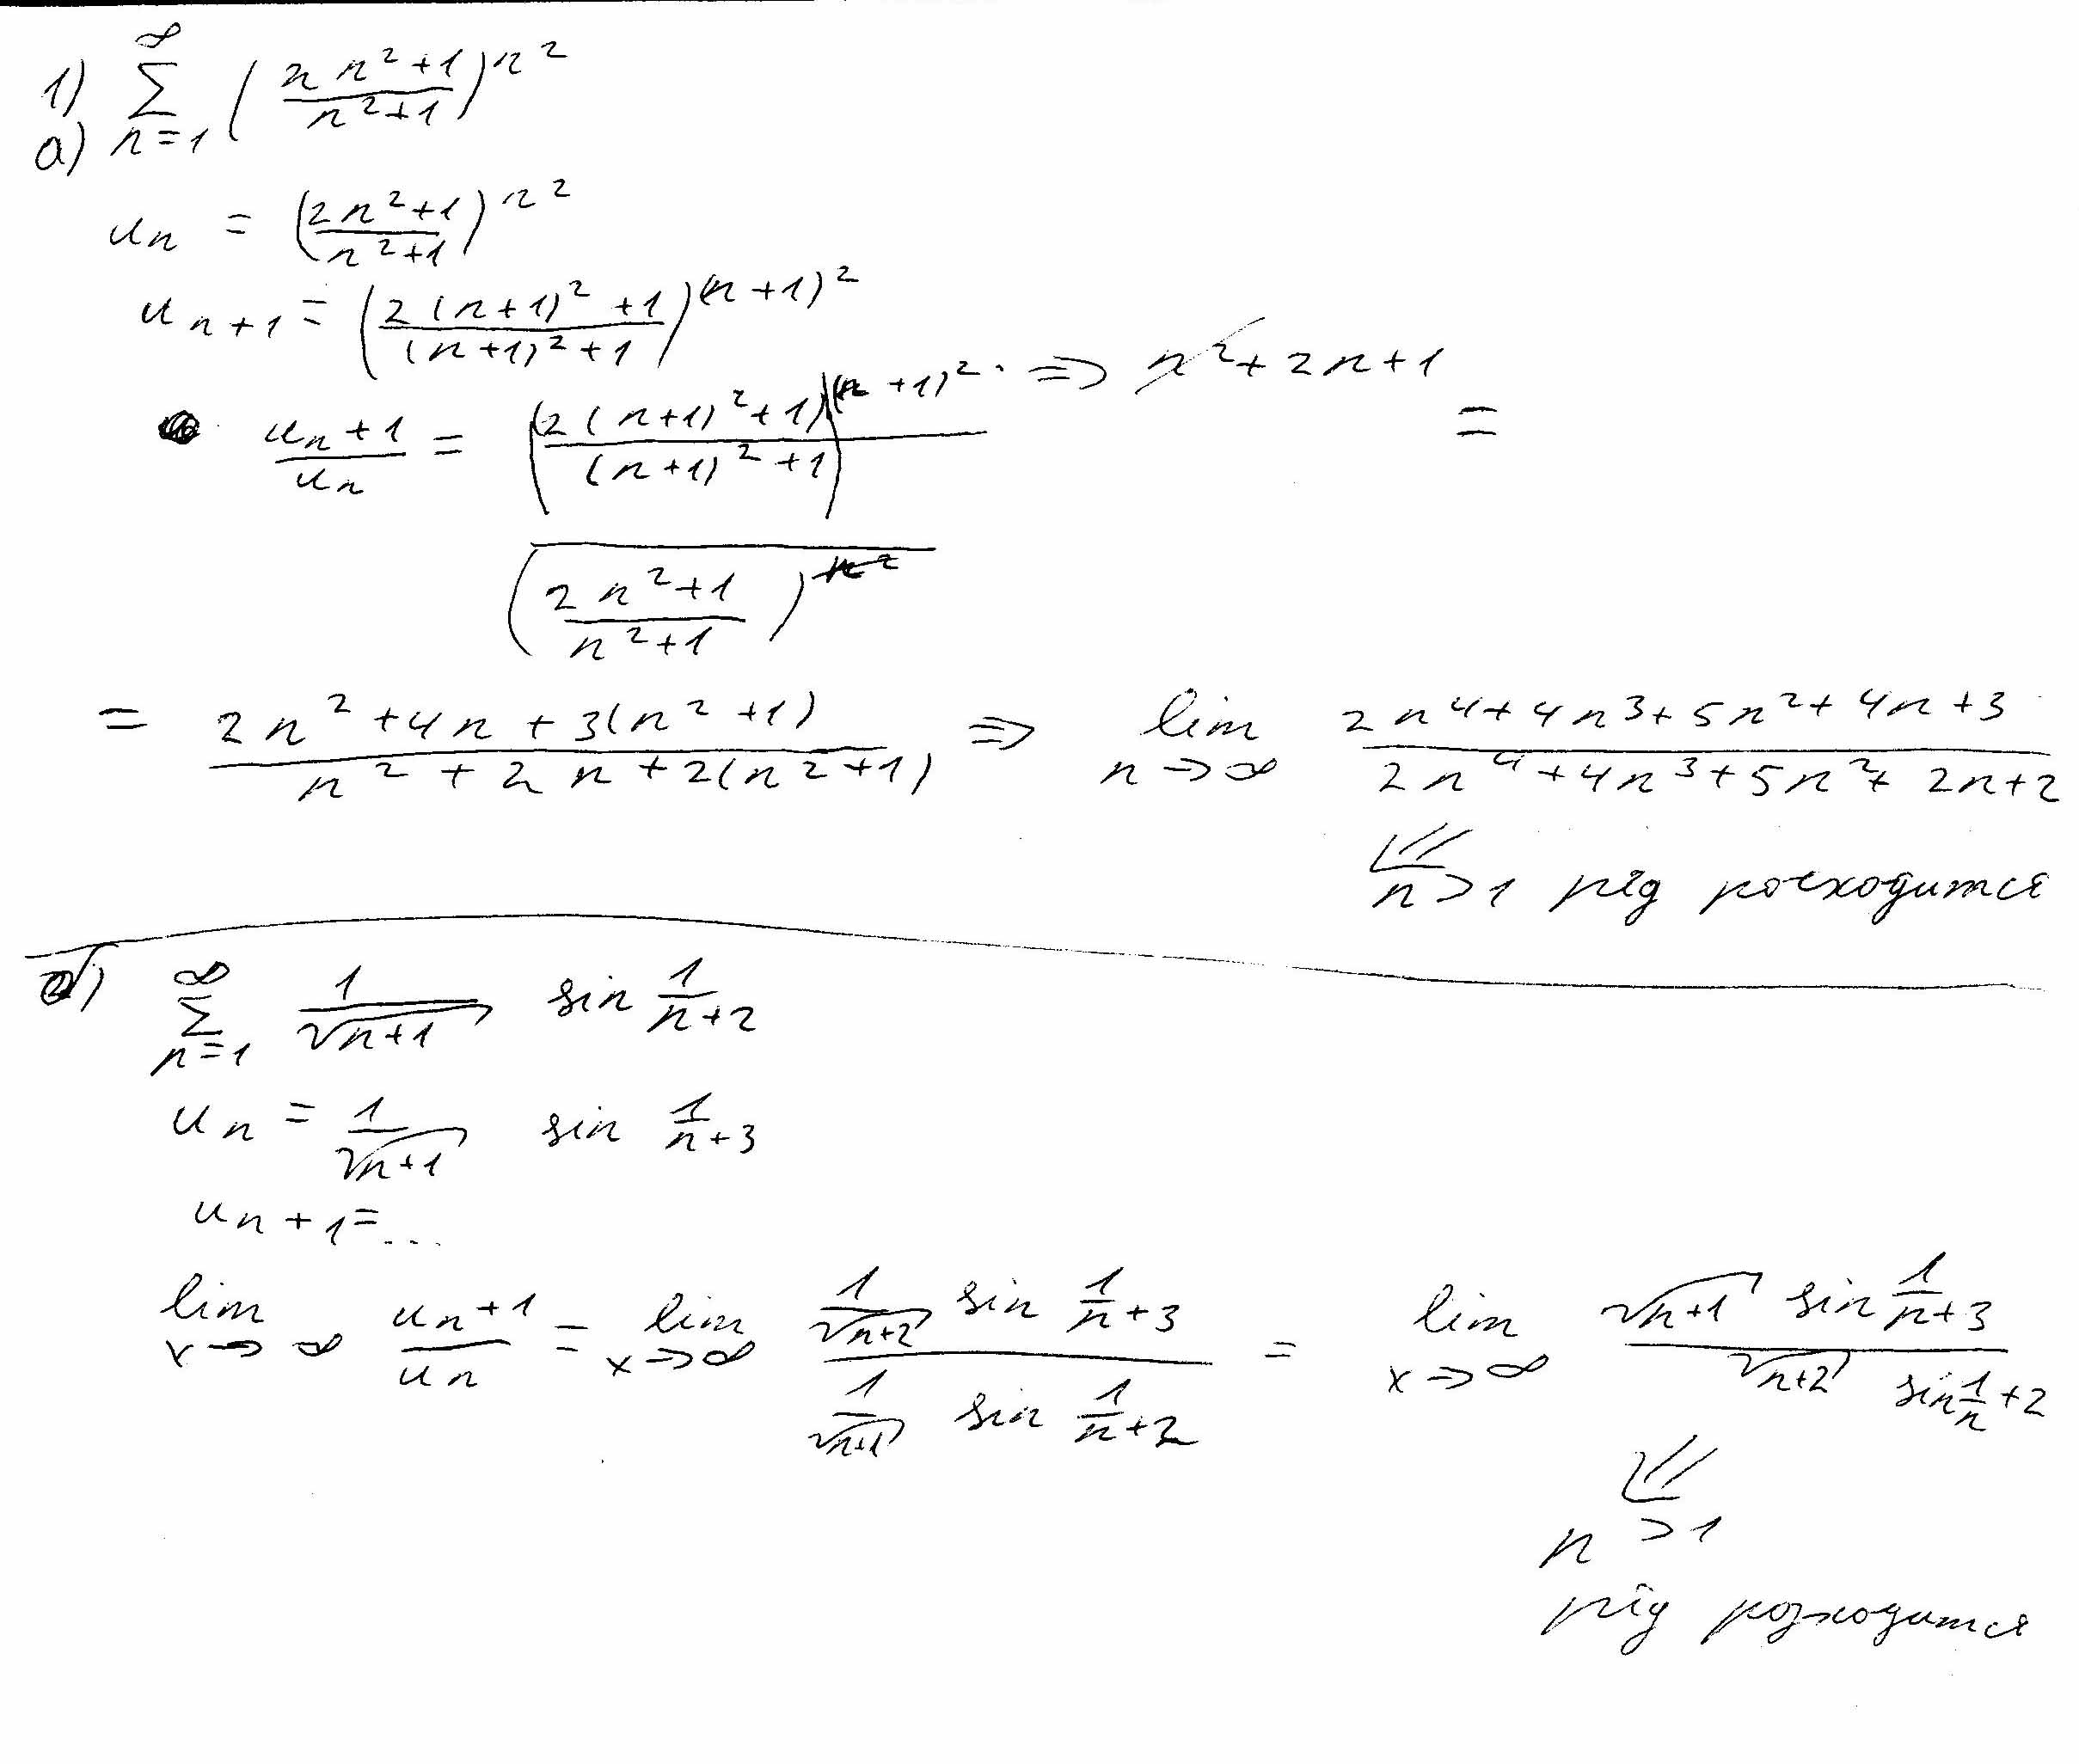 1) ∑_{n=1}^{∞} ( (2n²+1)/(n²+1) )^{n²}
а)
uₙ = ( (2n²+1)/(n²+1) )^{n²}
uₙ₊₁ = ( (2(n+1)²+1)/((n+1)²+1) )^{(n+1)²}
uₙ₊₁/uₙ = ( (2(n+1)²+1)/((n+1)²+1) )^{(n+1)²} / ( (2n²+1)/(n²+1) )^{n²} ⇒ n²+2n+1 =
= (2n²+4n+3(n²+1))/(n²+2n+2(n²+1)) ⇒ lim_{n→∞} (2n⁴+4n³+5n²+4n+3)/(2n⁴+4n³+5n²+2n+2)
⇓
n>1 ряд росходится
∑_{n=1}^{∞} 1/√(n+1) sin 1/(n+2)
uₙ = 1/√(n+1) sin 1/(n+3)
uₙ₊₁=...
lim_{x→∞} uₙ₊₁/uₙ = lim_{x→∞} (1/√(n+2) sin 1/n+3)/(1/√(n+1) sin 1/n+2) = lim_{x→∞} (√(n+1) sin 1/n+3)/(√(n+2) sin 1/n+2)
⇓
n >1
ряд розходится